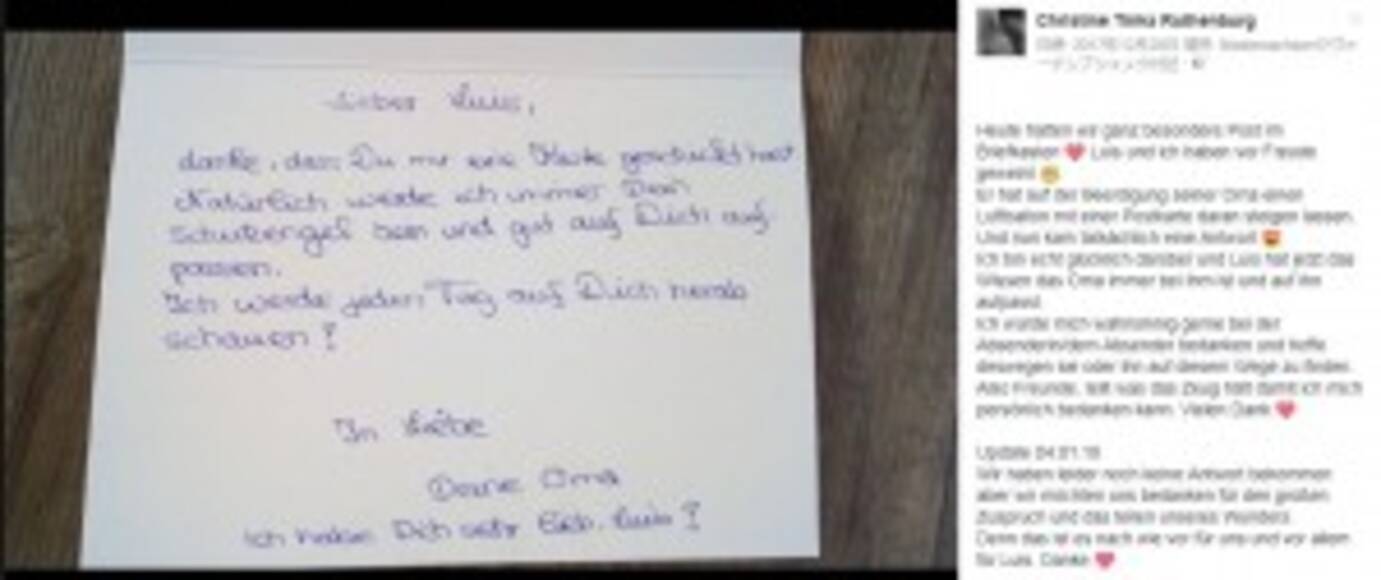 Lieber Luis,
danke, dass Du mir eine Karte geschickt hast
Natürlich werde ich immer Dein
Schutzengel sein und gut auf Dich auf-
passen.
Ich werde jeden Tag auf Dich herab
schauen!
In Liebe
Deine Oma
Ich habe Dich sehr lieb, Luis!
Christine
Heute hatten wir ganz besondere Post im
Briefkasten ❤ Luis und ich haben vor Freude
geweint
Er hat auf der Beerdigung seiner Oma einen
Luftballon mit einer Postkarte daran steigen lassen.
Und nun kam tatsächlich eine Antwort
Ich bin echt glücklich darüber und Luis hat jetzt das
Wissen das Oma immer bei ihm ist und auf ihn
aufpasst.
Ich würde mich wahnsinnig gerne bei der
Absenderin/dem Absender bedanken und hoffe
deswegen sie oder ihn auf diesem Wege zu finden.
Also Freunde, teilt was das Zeug hält damit ich mich
persönlich bedanken kann. Vielen Dank ❤
Update 04.01.18
Wir haben leider noch keine Antwort bekommen
aber wir möchten uns bedanken für den großen
Zuspruch und das teilen unseres Wunders.
Denn das ist es nach wie vor für uns und vor allem
für Luis. Danke ❤